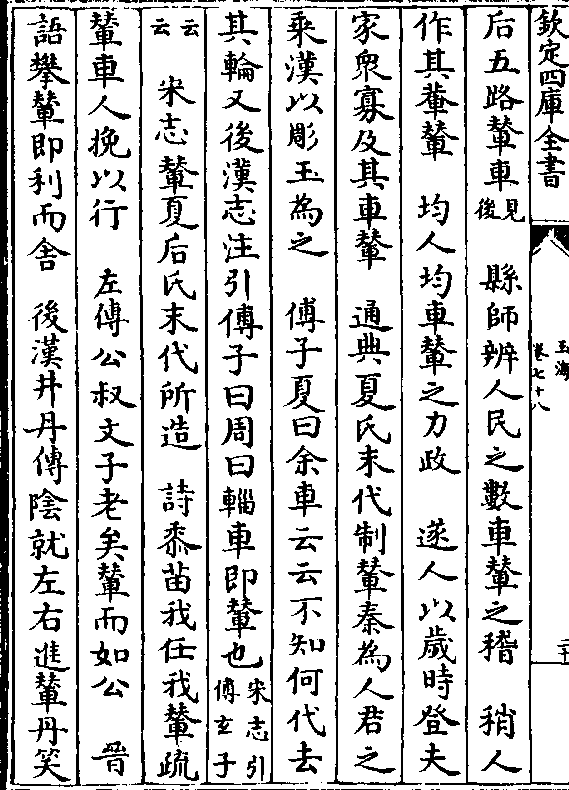 欽定四庫全書
玉海
卷七十八
二十
后五路輦車見後 縣師辨人民之數車輦之稽 稍人
作其輂輦 均人均車輦之力政 遂人以歲時登夫
家衆寡及其車輦 通典夏氏末代制輦秦為人君之
乘漢以彫玉為之 傅子夏曰余車云云不知何代去
其輪又後漢志注引傅子曰周曰輜車即輦也宋志引傅玄子
云云 宋志輦夏后氏末代所造 詩黍苗我任我輦疏
輦車人挽以行 左傳公叔文子老矣輦而如公 晉
語攀輦即利而舍 後漢井丹傳陰就左右進輦丹笑